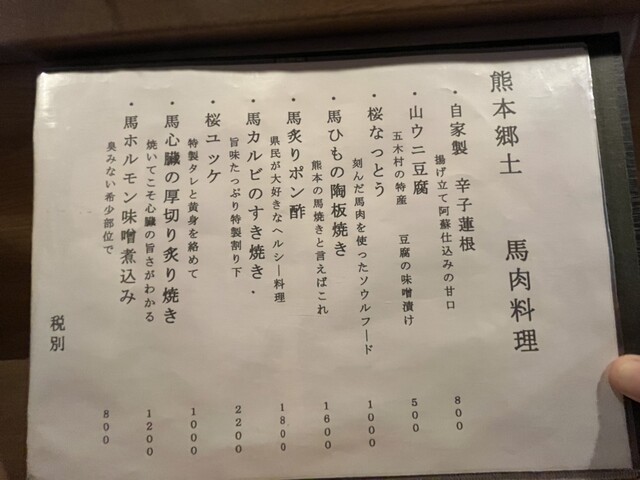 熊本郷土　馬肉料理
・自家製　辛子蓮根　800
揚げ立て阿蘇仕込みの甘口
・山ウニ豆腐　500
五木村の特産　豆腐の味噌漬け
・桜なっとう　1000
刻んだ馬肉を使ったソウルフード
・馬ひもの陶板焼き　1600
熊本の馬焼きと言えばこれ
・馬炙りポン酢　1800
県民が大好きなヘルシー料理
・馬カルビのすき焼き・　2200
旨味たっぷり特製割り下
・桜ユッケ　1000
特製タレと黄身を絡めて
・馬心臓の厚切り炙り焼き　1200
焼いてこそ心臓の旨さがわかる
・馬ホルモン味噌煮込み　800
臭みない希少部位で
税別